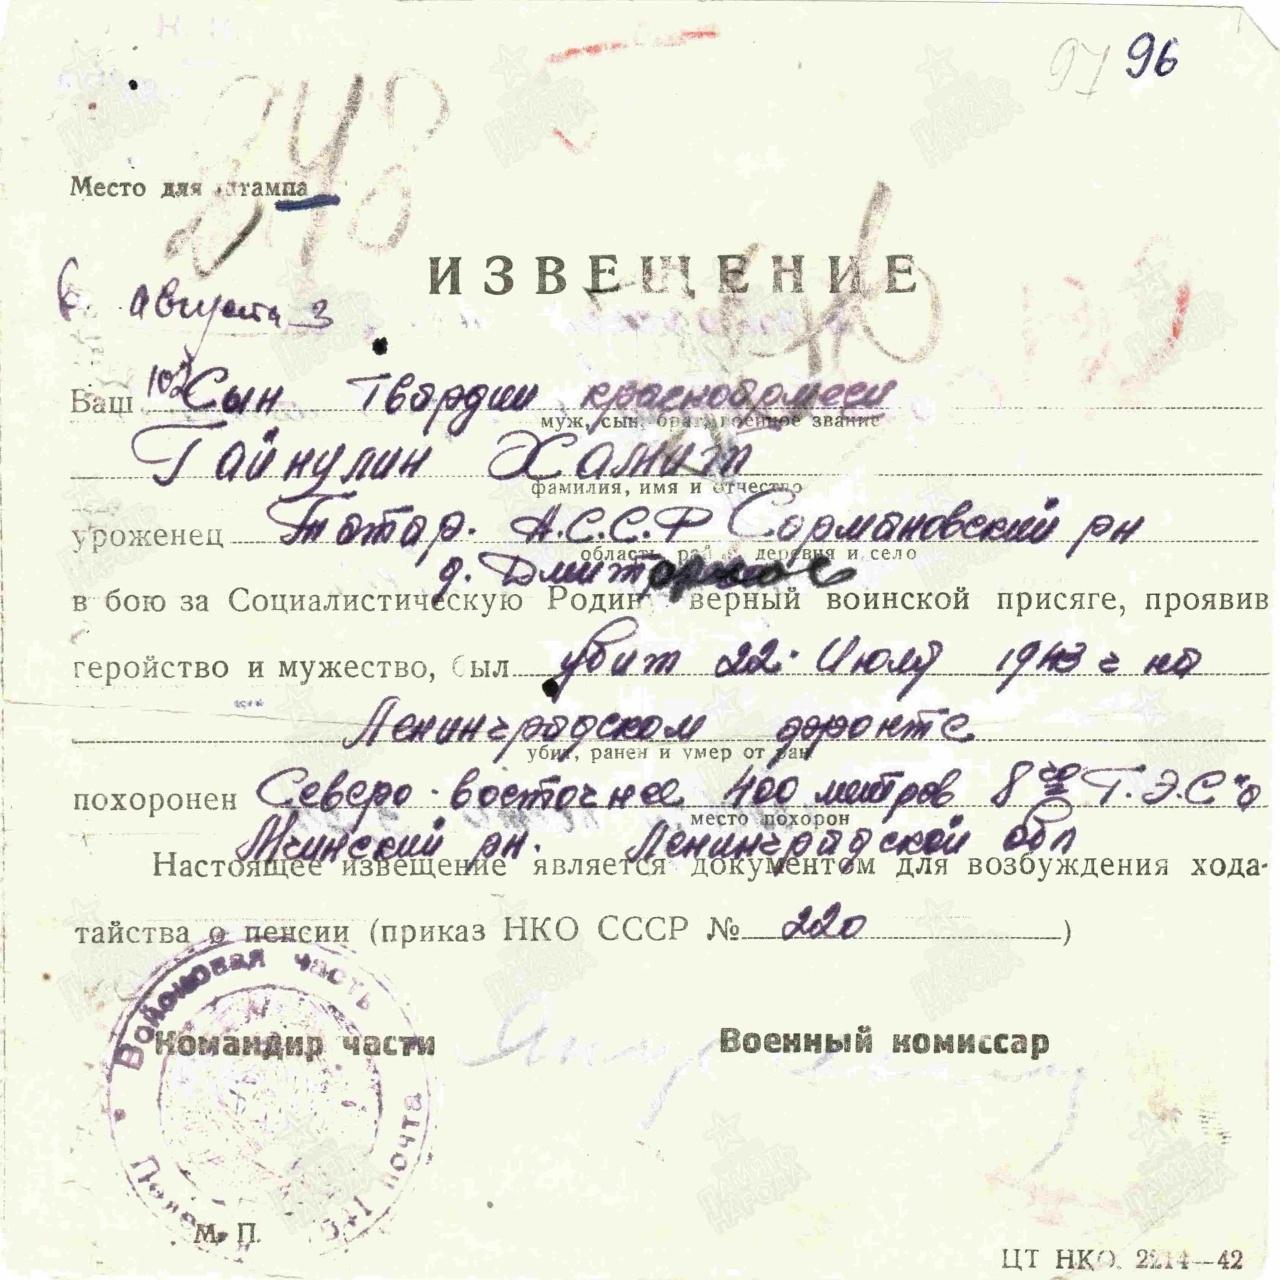 97 96
248
Место для штампа
ИЗВЕЩЕНИЕ
6 августа 3
Ваш сын Гвардии красноармеец
муж, сын, брат, военное звание
Гайнулин Хамит
фамилия, имя и отчество
уроженец Татар. А.С.С.Р Сармановский рн
область, рай деревня и село
д.
в бою за Социалистическую Родину верный воинской присяге, проявив
геройство и мужество, был убит 22. Июля 1943 г на
Ленинградском фронте
убит, ранен и умер от ран
похоронен Северо-восточнее 400 метров 8 го Г.Э.С
место похорон
Мгинский рн. Ленинградской обл
Настоящее извещение является документом для возбуждения хода-
тайства о пенсии (приказ НКО СССР № 220 )
Войсковая часть
Командир части Военный комиссар
почта
М. П.
ЦТ НКО. 2214—42
ПАМЯТЬ НАРОДА